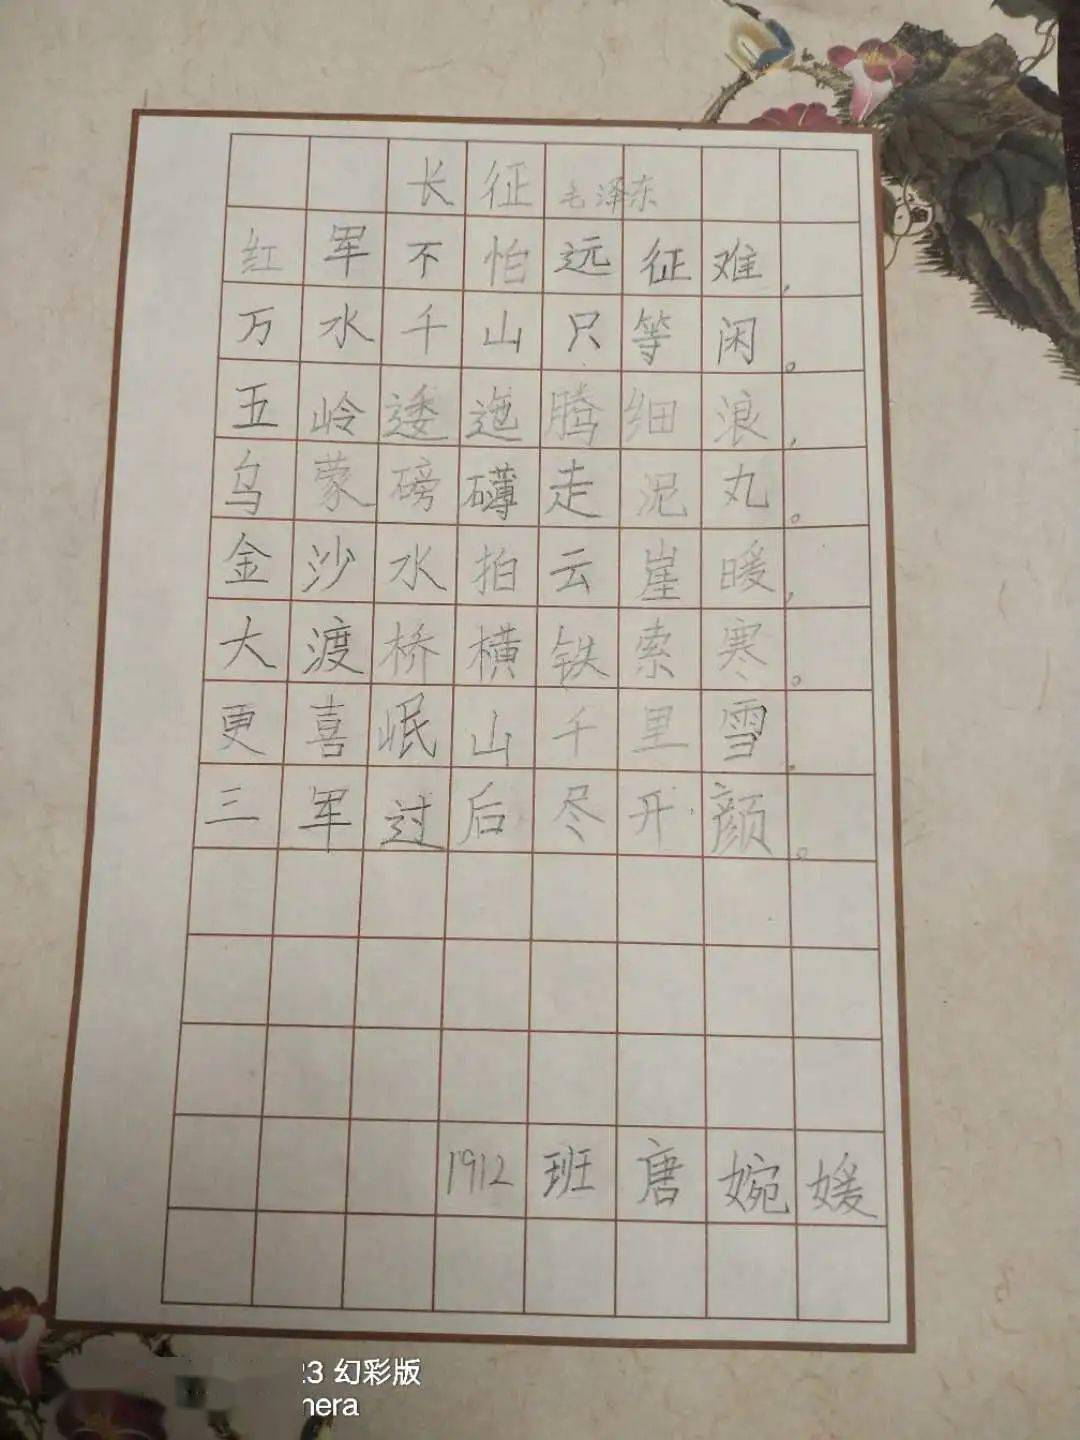 长征 毛泽东
红军不怕远征难,
万水千山只等闲。
五岭逶迤腾细浪,
乌蒙磅礴走泥丸。
金沙水拍云崖暖,
大渡桥横铁索寒。
更喜岷山千里雪.
三军过后尽开颜。
1912班唐婉媛
23 幻彩版
mera